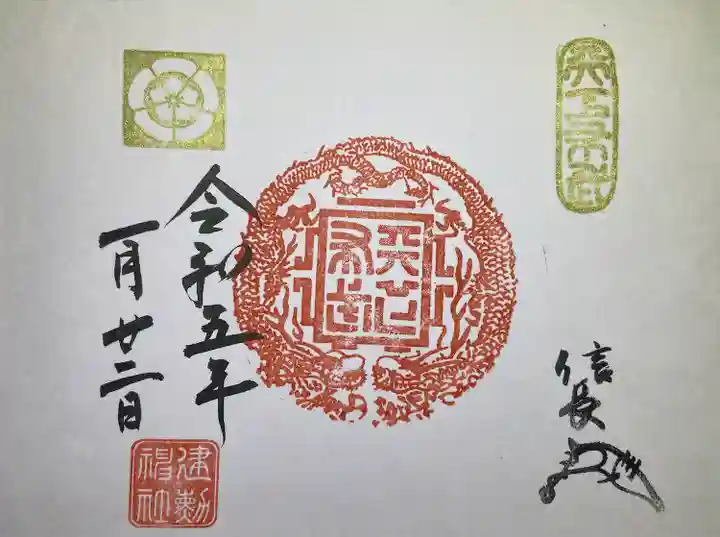 天下布武
信長
天下布武
令和五年
一月廿二日
建勲神社